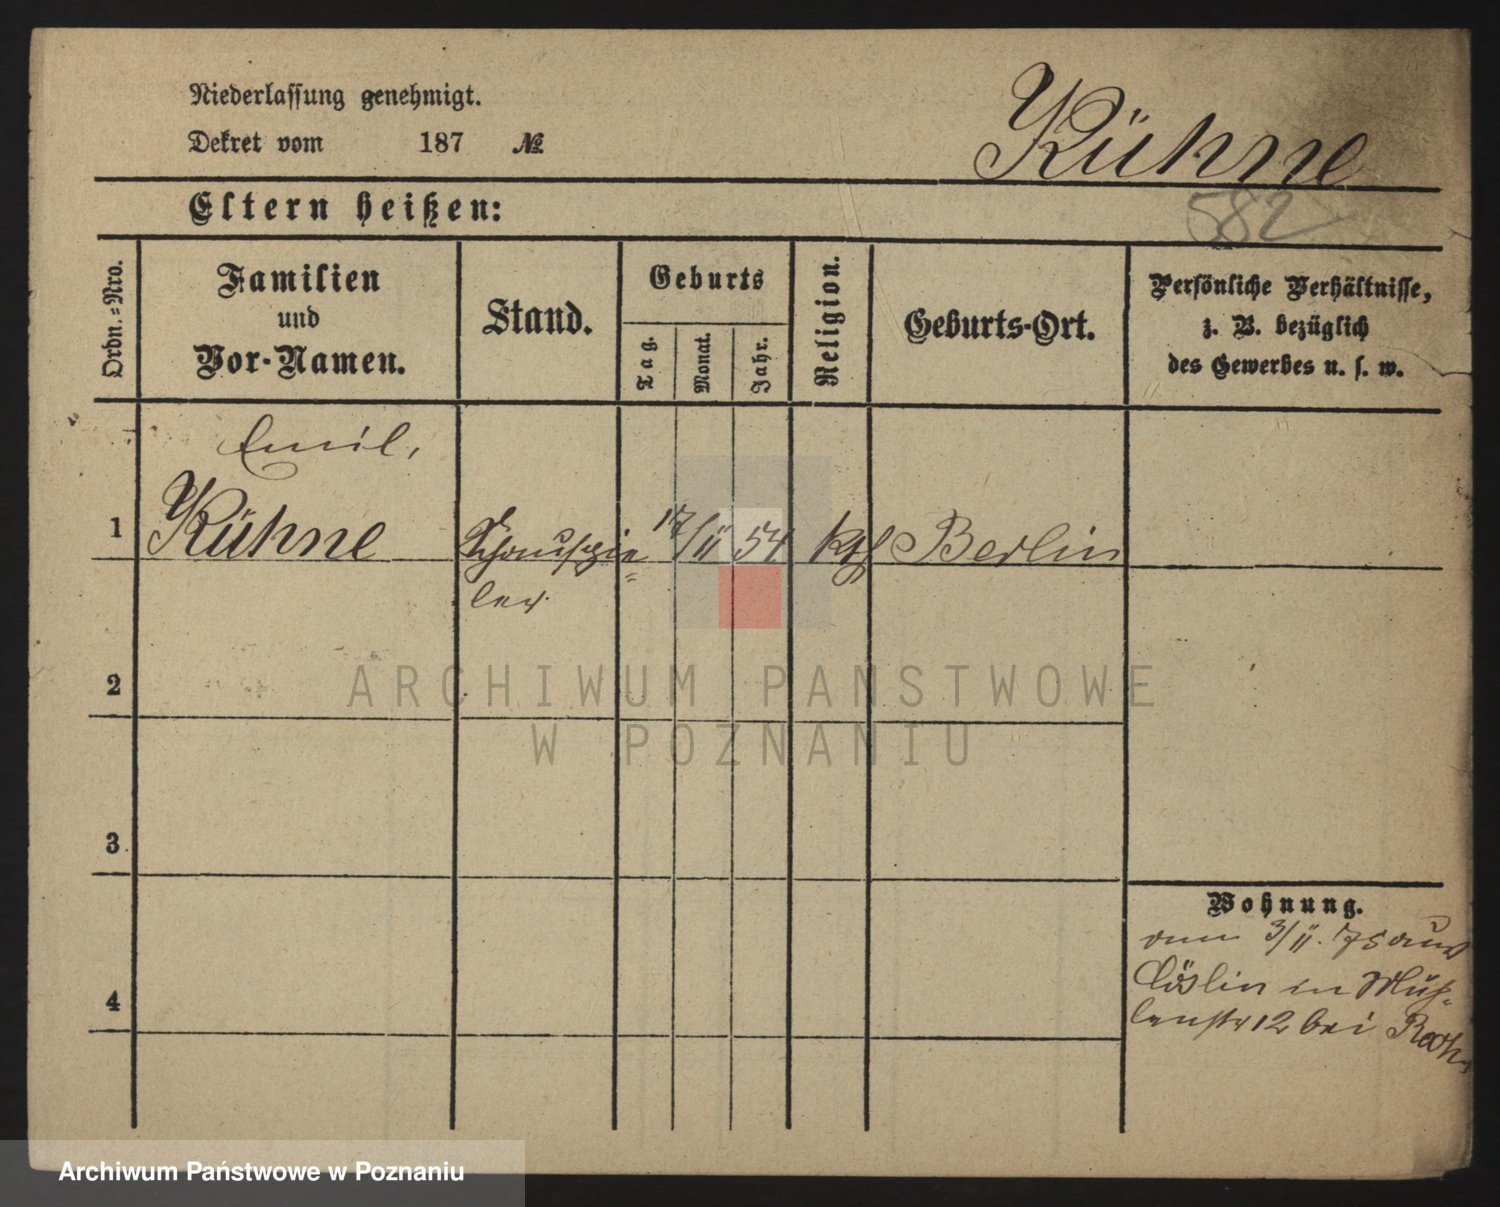 Niederlassung genehmigt.
Dekret vom 187 №
Kühne
Eltern heißen:
582
Ordn.=Nro.
Familien
und
Vor-Namen.
Stand.
Geburts
Tag.
Monat.
Jahr.
Religion.
Geburts-Ort.
Persönliche Verhältnisse,
z. B. bezüglich
des Gewerbes u. s. w.
Emil,
1 Kühne Schauspie= 17/II 54 kth Berlin
ler
2
3
4
Wohnung.
am 3/II. 75 aus
Cöslin in Müh-
lenstr 12 bei
ARCHIWUM PAŃSTWOWE
W POZNANIU
Archiwum Państwowe w Poznaniu